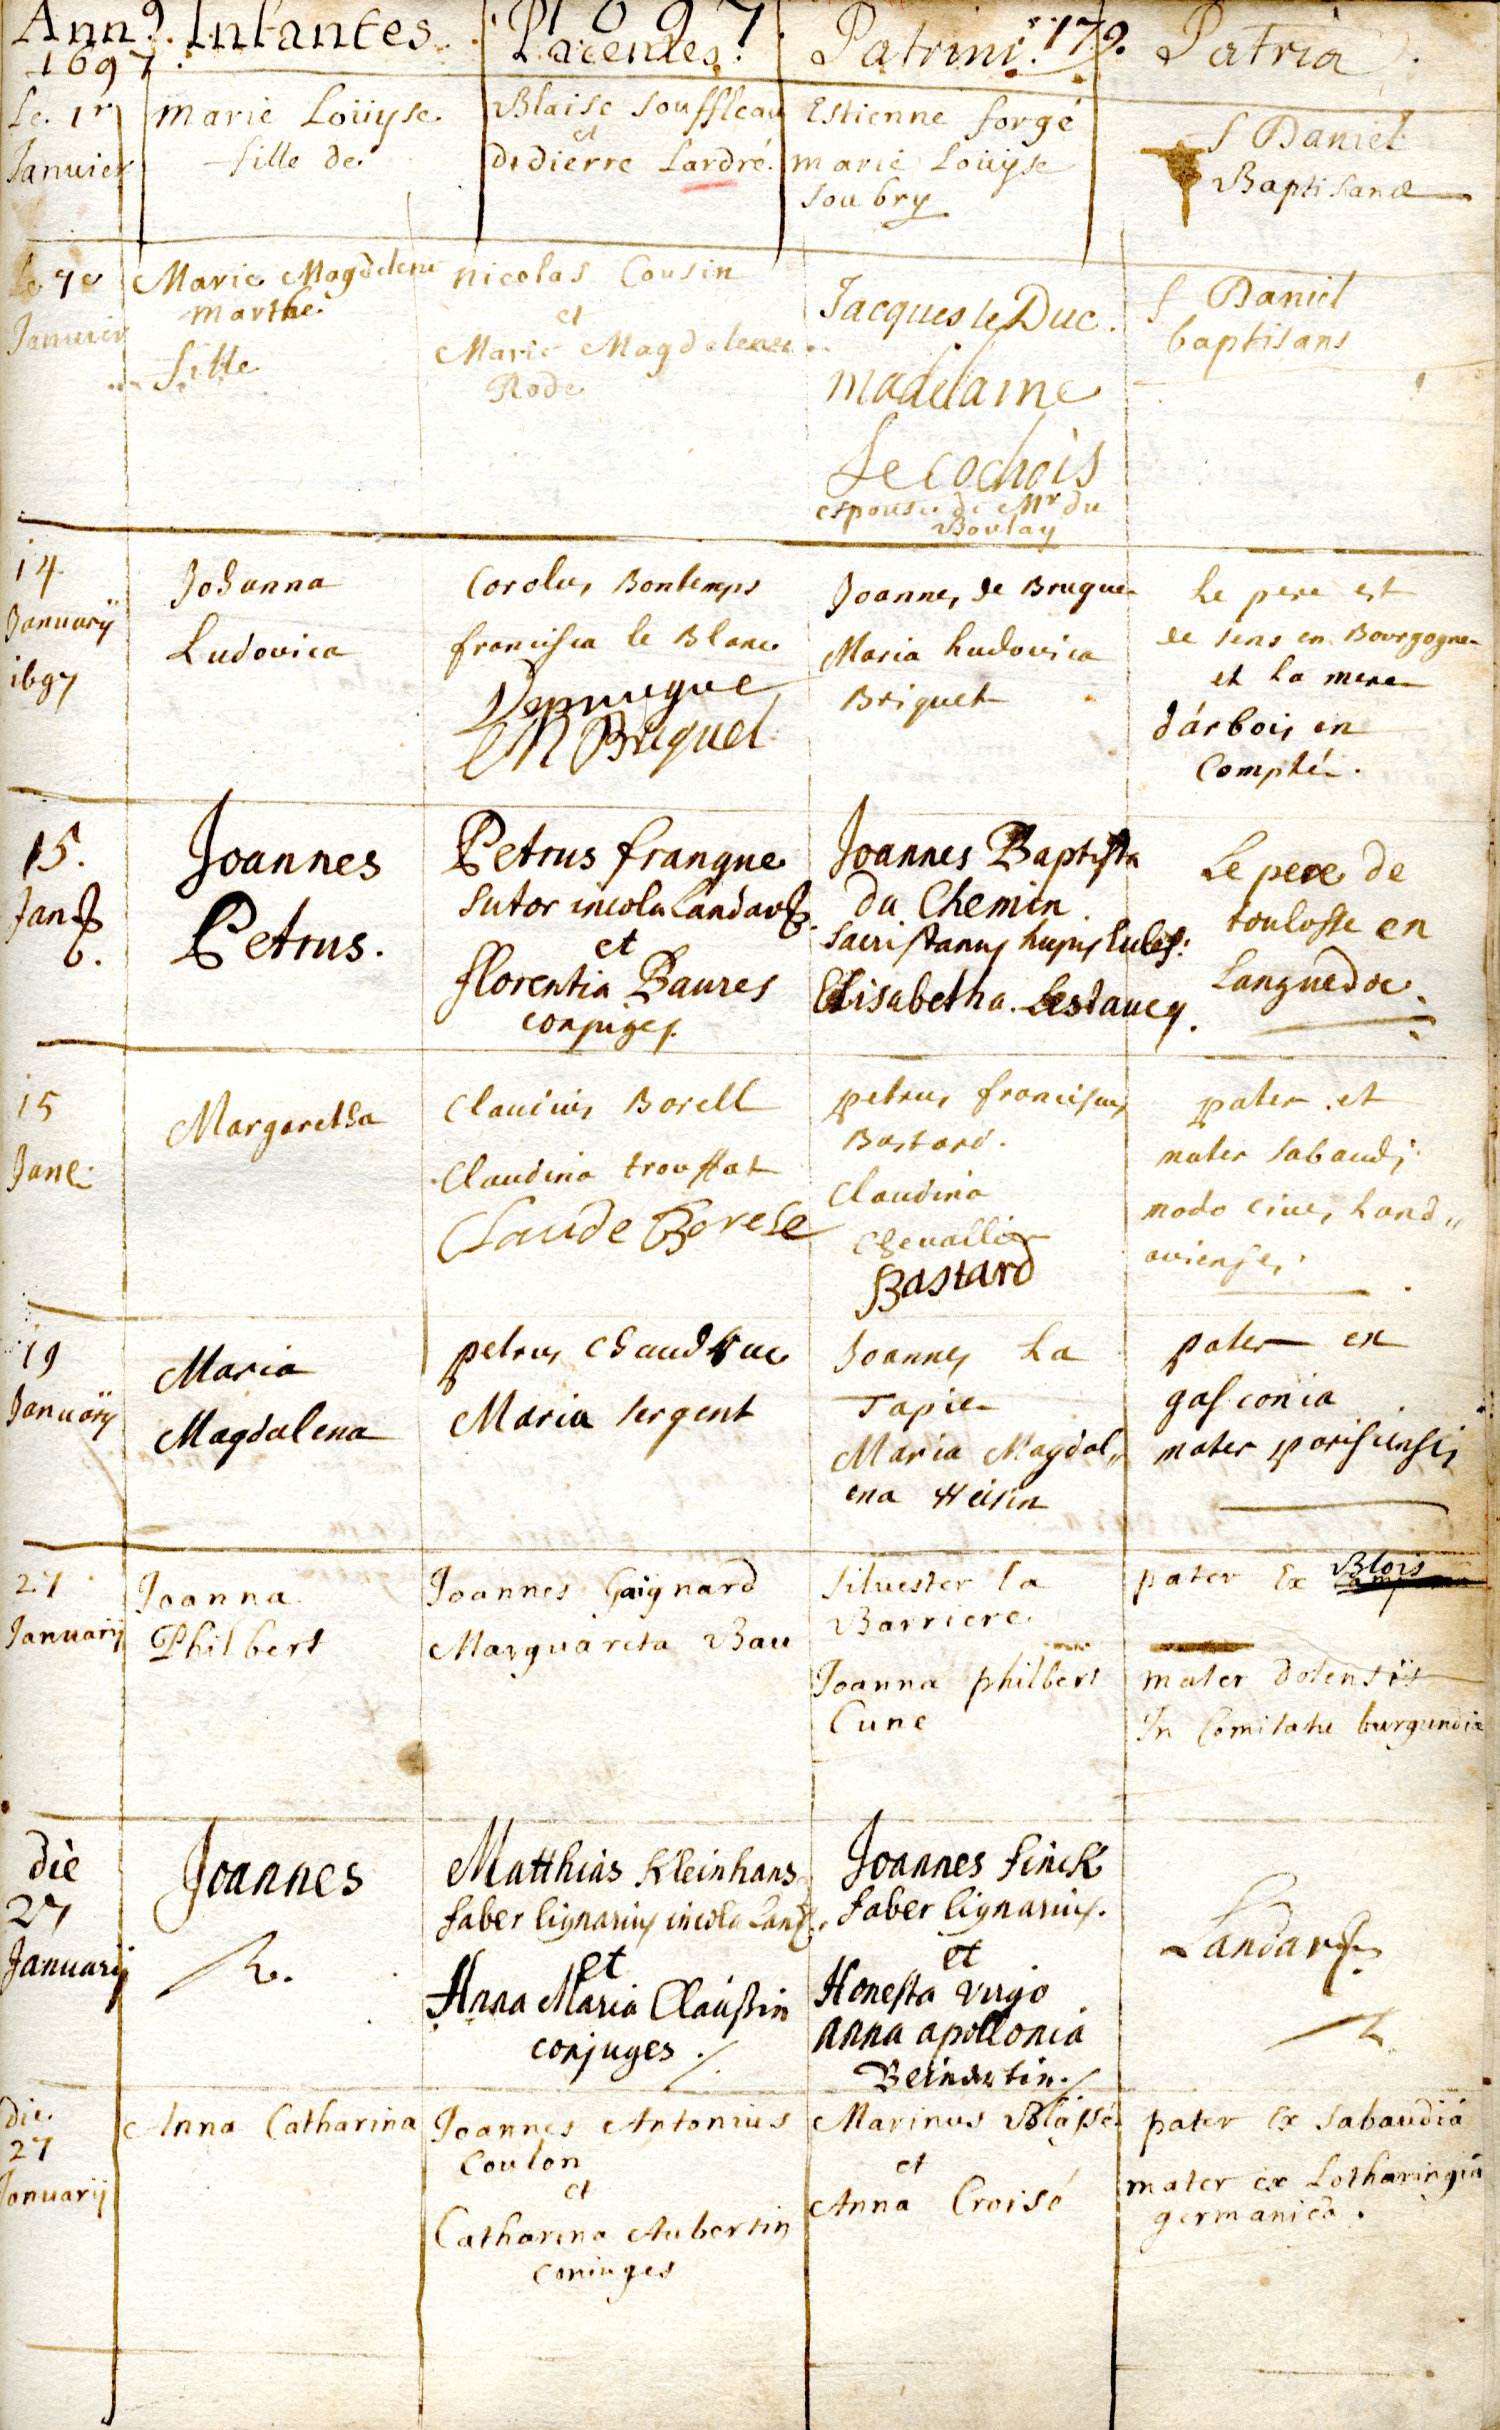 Ann9. Infantes. 1697 Parentes. Patrini. 179. Patria.
1697.
Le. 1r Marie Loüyse Blaise Souffleau Estienne forgé S Daniel
Januier fille de et marie Loüyse Baptisand
Dedierre Lardré. Soubry
Le 7e Marie Magdelene Nicolas Cousin Jacques le Duc. S Daniel
Januier Marthe et madelaine baptisans
fille Marie Magdelene Le cochois
Rode espouse de Mr du
Boulay
14 Johanna Carolus Bontemps Joannes de Brugue Le pere est
Januarÿ Ludovica francisca le Blanc Maria Ludovica de sens en Bourgogne
1697 Briquet et la mere
M Briquet d'arbois en
Compté.
15. Joannes Petrus frangne Joannes Baptista Le pere de
Jan Petrus. Sutor incola Landav du Chemin toulosse en
et Sacristanus hujus Languedoc.
florentia Baures Elisabetha
conjuges.
15 Margaretha Claudius Borell petrus franciscus pater et
Jane Claudina trouffat Bastard. mater sabaudi
Claude Borele Claudina modo cives Land„
Chevallier avienses.
Bastard
19 Maria petrus Chaud Maria Sergent Joannes La pater ex
Januarÿ Magdalena Tapie gasconia
Maria Magdal„ mater parisiensis
ena
27 Joanna Joannes Gaignard Silvester la pater Ex Blois
Januarij Philbert Marguareta Bau Barriere
Joanna philbert mater dolensis
Cune In Comitatu burgundiæ
die Joannes Matthias Kleinhans Joannes Finck Landav
27 faber lignarius incola Land. faber lignarius.
Januarij et et
Anna Maria Claußin Honesta virgo
conjuges anna apollonia
die Anna Catharina Joannes Antonius Marinus Blassé pater Ex Sabaudiá
27 Coulon et mater ex Lotharingiá
Januarij et Anna Croisé germanicá.
Catharina Aubertin
coniuges